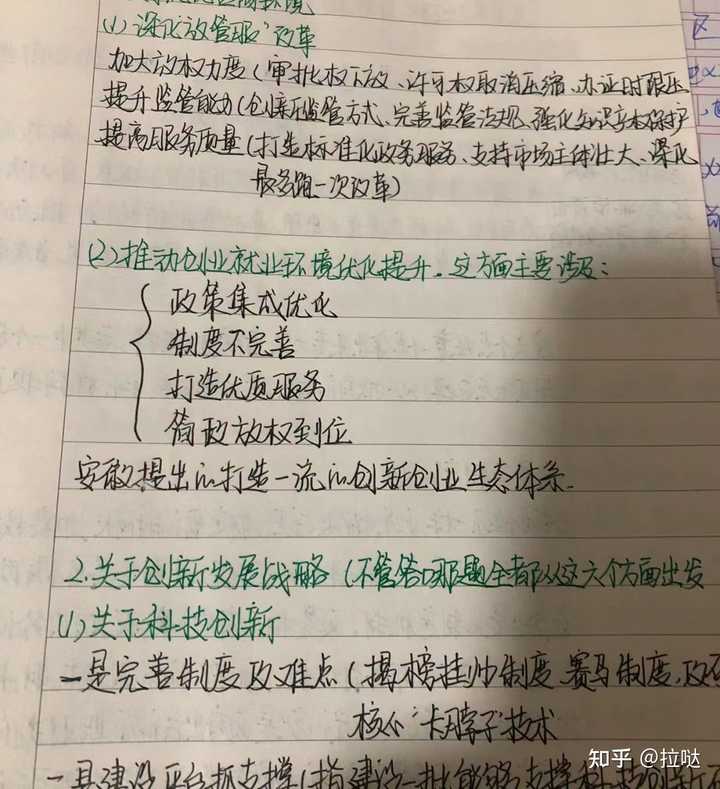 (1) 深化"放管服"改革
加大放权力度(审批权下放、许可权取消压缩、办证时限压
提升监管能力(创新监管方式、完善监管法规、强化知识产权保护
提高服务质量(打造标准化政务服务、支持市场主体壮大、深化
最多跑一次改革)
(2)推动创业就业环境优化提升.这方面主要涉及:
政策集成优化
制度不完善
打造优质服务
简政放权到位
安徽提出的打造一流的创新创业生态体系.
2.关于创新发展战略(不管答哪题全都从这六个方面出发
(1)关于科技创新
一是完善制度及难点(揭榜挂帅制度、赛马制度,及
核心"卡脖子"技术
一是建设平台抓支撑(指建设一批能够支撑科技创新
知乎 @拉哒